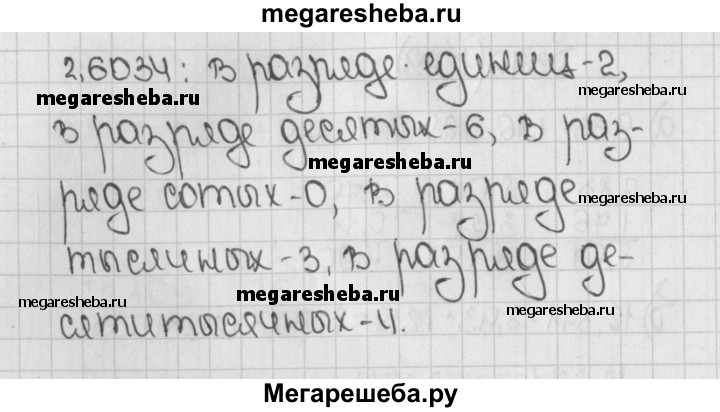 megaresheba.ru
2,6034: в разряде единиц-2,
megaresheba.ru
megaresheba.ru
в разряде десятых-6, в раз-
megaresheba.ru
ряде сотых-0, в разряде
megaresheba.ru
тысячных-3, в разряде де-
megaresheba.ru
megaresheba.ru
megaresheba.ru
сятитысячных-4.
Мегарешеба.ру